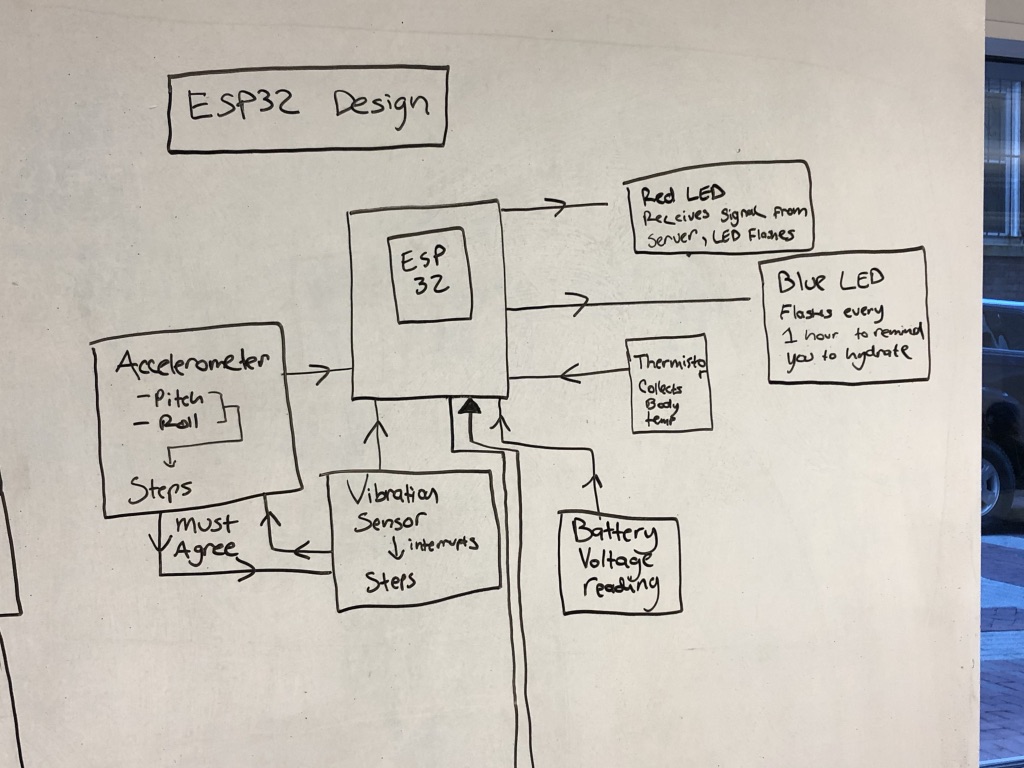 ESP32 Design
ESP
32
Red LED
Receives Signal From
Server, LED Flashes
Blue LED
Flashes every
1 hour to remind
you to hydrate
Thermistor
Collects
Body
temp
Accelerometer
- Pitch
- Roll
Steps
Must
Agree
Vibration
Sensor
interrupts
Steps
Battery
Voltage
reading